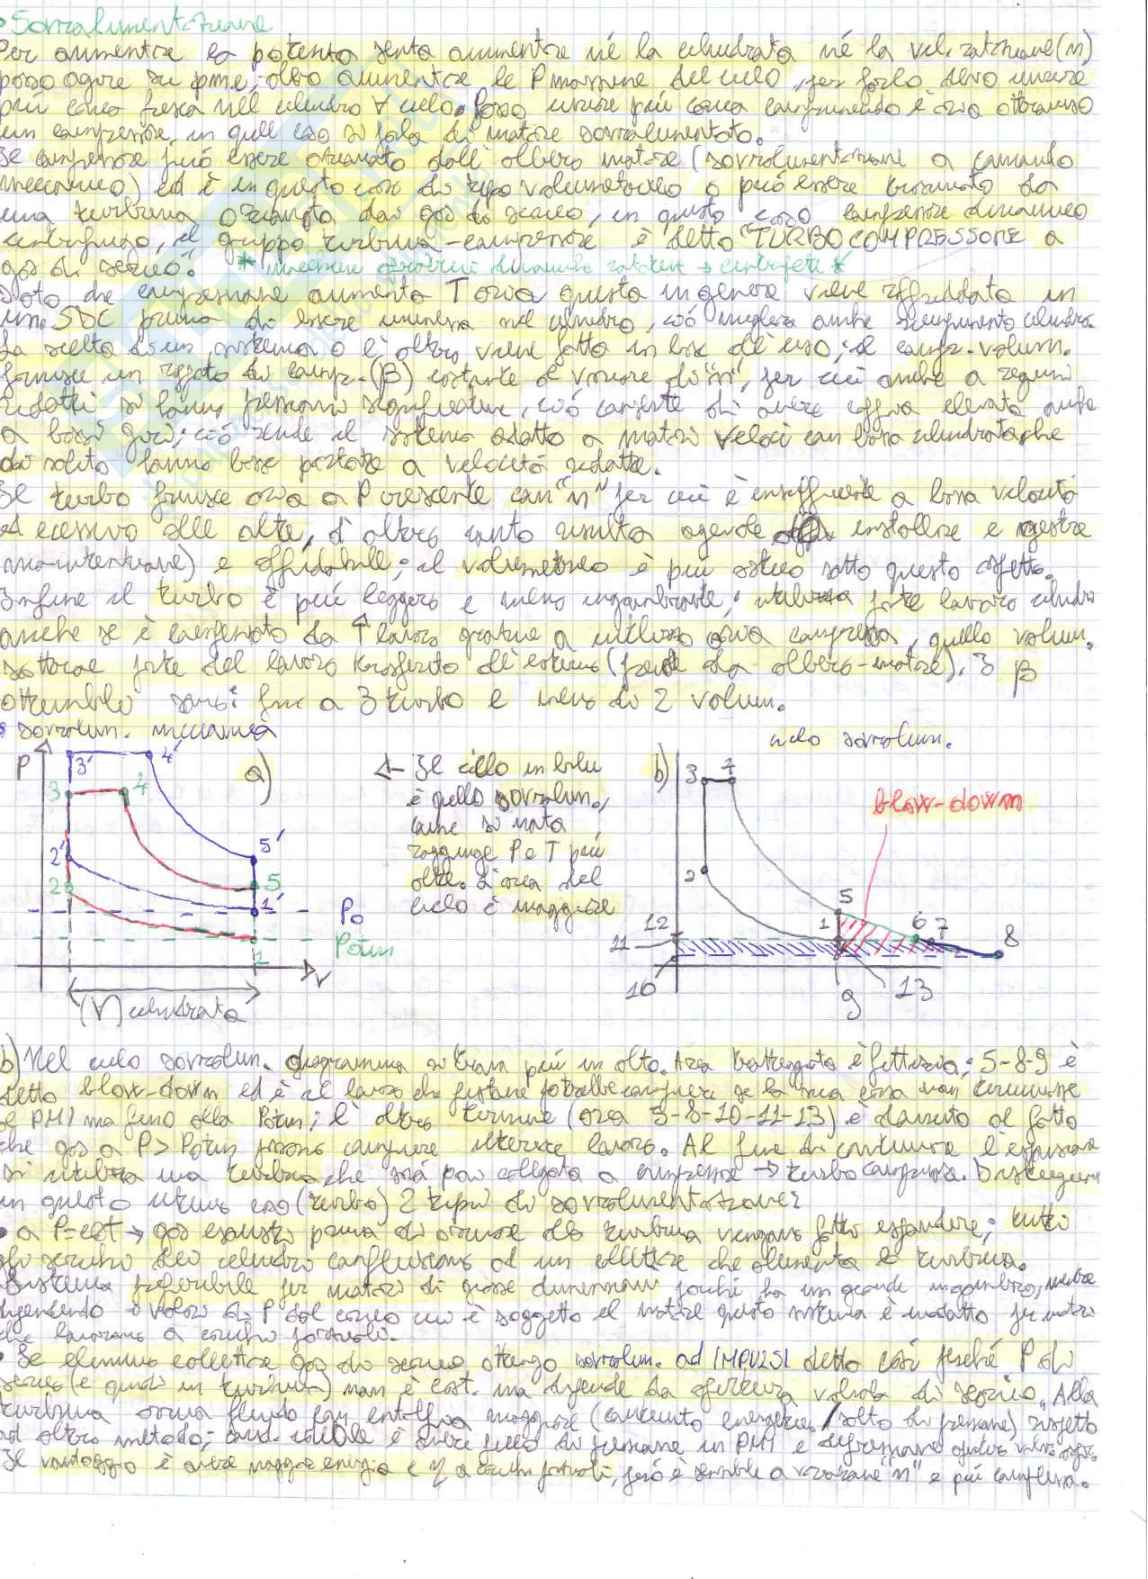 • Sovralimentazione
Per aumentare la potenza senza aumentare né la cilindrata né la vel. rotazione (n)
posso agire su pme, devo aumentare le P massime del ciclo, per farlo devo
più carica fresca nel cilindro ∀ ciclo. Posso più carica comprimendo l'aria attraverso
un compressore, in quel caso si parla di motore sovralimentato.
Il compressore può essere azionato dall'albero motore (sovralimentazione a comando
meccanico) ed è in questo caso di tipo volumetrico o può essere trascinato da
una turbina azionata dai gas di scarico, in questo caso compressore dinamico
centrifugo, il gruppo turbina-compressore è detto "TURBOCOMPRESSORE a
gas di scarico". * macchine operatrici dinamiche rotative → centrifughe *
Dato che compressione aumenta T aria questa in genere viene raffreddata in
uno SDC prima di essere immessa nel cilindro, ciò migliora anche riempimento cilindro.
La scelta di un sistema o l'altro viene fatta in base all'uso; il comp. volum.
fornisce un rapporto di compr. (β) costante al variare di "n", per cui anche a regimi
ridotti si hanno pressioni significative, ciò consente di avere coppia elevata anche
a bassi giri; ciò rende il sistema adatto a motori veloci con bassa cilindrata che
di solito hanno basse portate a velocità ridotte.
Il turbo fornisce aria a P crescente con "n" per cui è insufficiente a bassa velocità
ed eccessivo alle alte, d'altro canto risulta agevole da installare e gestire
(manutenzione) e affidabile; il volumetrico è più ostico sotto questo aspetto.
Infine il turbo è più leggero e meno ingombrante; utilizza parte lavoro cilindro
anche se è compensato da ↑ lavoro grazie a utilizzo aria compressa, quello volum.
sottrae parte del lavoro trasferito all'esterno (preso da albero-motore). I β
ottenibili sono: fino a 3 turbo e meno di 2 volum.
sovralim. meccanica
ciclo sovralim.
P
3'
4'
a)
3
4
2'
2
5'
5
1'
1
P0
Patm
V
(V) cilindrata
← Il ciclo in blu
è quello sovralim.,
come si nota
raggiunge P e T più
alte. L'area del
ciclo è maggiore
b)
3
4
blow-down
2
5
1
6
7
8
12
11
10
9
13
b) Nel ciclo sovralim. diagramma si trova più in alto. Area tratteggiata è fittizia; 5-8-9 è
detto blow-down ed è il lavoro che pistone potrebbe compiere se la sua corsa non terminasse
al PMI ma fino alla Patm; l'altro termine (area 9-8-10-11-13) è dovuto al fatto
che gas a P>Patm possono compiere ulteriore lavoro. Al fine di continuare l'espansione
si utilizza una turbina che sarà poi collegata a compressore → turbocompressore. Distinguiamo
in questo ultimo caso (turbo) 2 tipi di sovralimentazione:
• a P=cost → gas esausti prima di arrivare alla turbina vengono fatti espandere; tutti
gli scarichi dei cilindri confluiscono ad un collettore che alimenta la turbina.
Sistema preferibile per motori di grosse dimensioni poiché ha un grande ingombro, inoltre
dipendendo i valori di P dal carico cui è soggetto il motore questo sistema è inadatto per motori
che lavorano a carichi parziali.
• Se elimino collettore gas di scarico ottengo sovralim. ad IMPULSI detto così perché P di
scarico (e quindi in turbina) non è cost. ma dipende da apertura valvola di scarico. Alla
turbina arriva fluido con entalpia maggiore (contenuto energetico/salto di pressione) rispetto
ad altro metodo; cond. ideale è avere picco di pressione in PMI e depressione
Il vantaggio è avere maggiore energia e η a carichi parziali, però è sensibile a variazione "n" e più complessa.